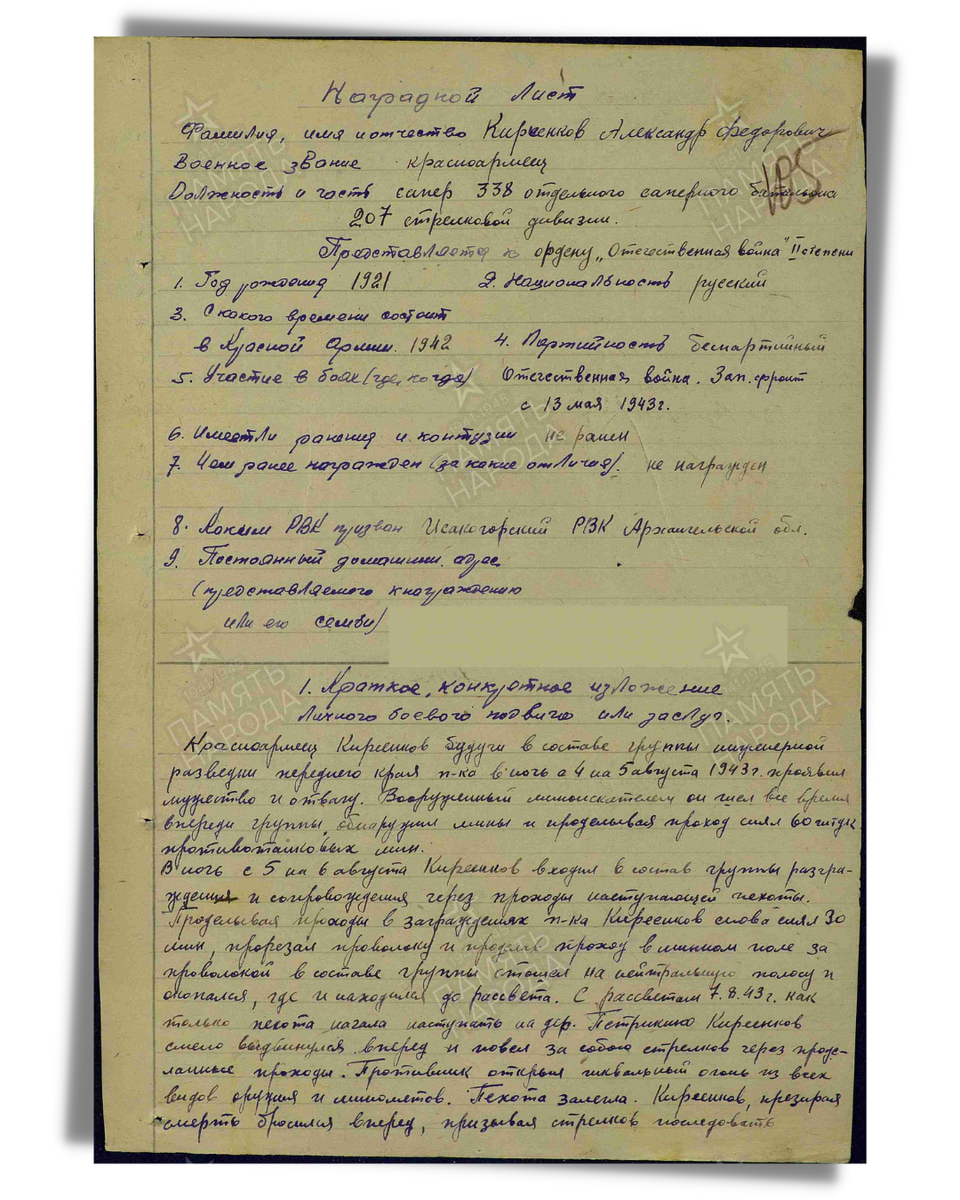 Наградной Лист
Фамилия, имя и отчество Киреенков Александр Федорович
105
Военное звание красноармеец
Должность и часть сапер 338 отдельного саперного батальона
207 стрелковой дивизии.
Представляется к ордену „Отечественная война" II степени
1. Год рождения 1921 2. Национальность русский
3. С какого времени состоит
в Красной Армии. 1942 4. Партийность беспартийный
5. Участие в боях (где, когда) Отечественная война. Зап. фронт
с 13 мая 1943г.
6. Имеет ли ранения и контузии не ранен
7. Чем ранее награжден (за какие отличия). не награжден
8. Каким РВК призван Исакогорский РВК Архангельской обл.
9. Постоянный домашний адрес
(представляемого к награждению
или его семьи)
1. Краткое, конкретное изложение
личного боевого подвига или заслуг.
Красноармеец Киреенков будучи в составе группы инженерной
разведки переднего края п-ка в ночь с 4 на 5 августа 1943г. проявил
мужество и отвагу. Вооруженный миноискателем он шел все время
впереди группы, обнаружил мины и проделывая проход снял 60 штук
противотанковых мин.
В ночь с 5 на 6 августа Киреенков входил в состав группы разгра-
ждения и сопровождения через проходы наступающей пехоты.
Проделывая проходы в заграждениях п-ка Киреенков снова снял 30
мин, прорезал проволоку и проделал проход в минном поле за
проволокой в составе группы отошел на нейтральную полосу и
окопался, где и находился до рассвета. С рассветом 7.8.43г. как
только пехота начала наступать на дер. Петрикино Киреенков
смело выдвинулся вперед и повел за собою стрелков через проде-
ланные проходы. Противник открыл шквальный огонь из всех
видов оружия и минометов. Пехота залегла. Киреенков, презирая
смерть бросился вперед, призывая стрелков последовать
ПАМЯТЬ НАРОДА